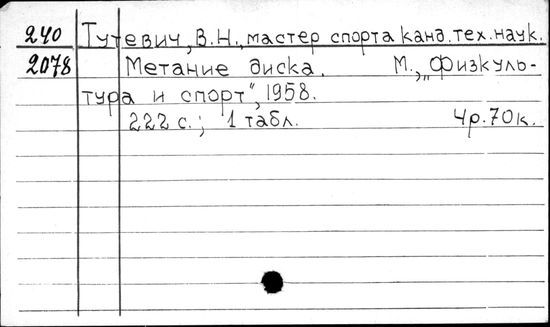 240 Тутевич, В.Н., мастер спорта канд. тех. наук.
2078 Метание диска. М., „Физкуль-
тура и спорт", 1958.
222 с.; 1 табл. 4р.70к.